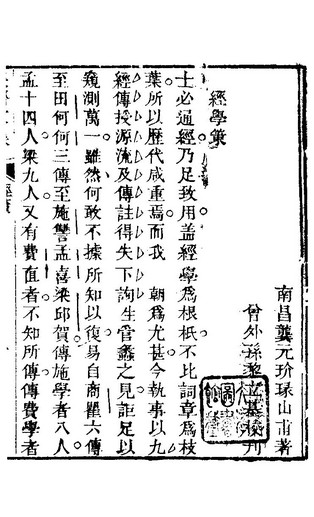 南昌龔元玠琭山甫著
曾外孫黎
校刊
經學策
士必通經乃足致用蓋經學爲根柢不比詞章爲枝
葉所以歷代咸重焉而我　朝爲尤甚今執事以九
經傳授源流及傳註得失下詢生管蠡之見詎足以
窺測萬一雖然何敢不據所知以復易自商瞿六傳
至田何何三傳至施讐孟喜梁邱賀傳施學者八人
孟十四人梁九人又有費直者不知所傳傳費學者